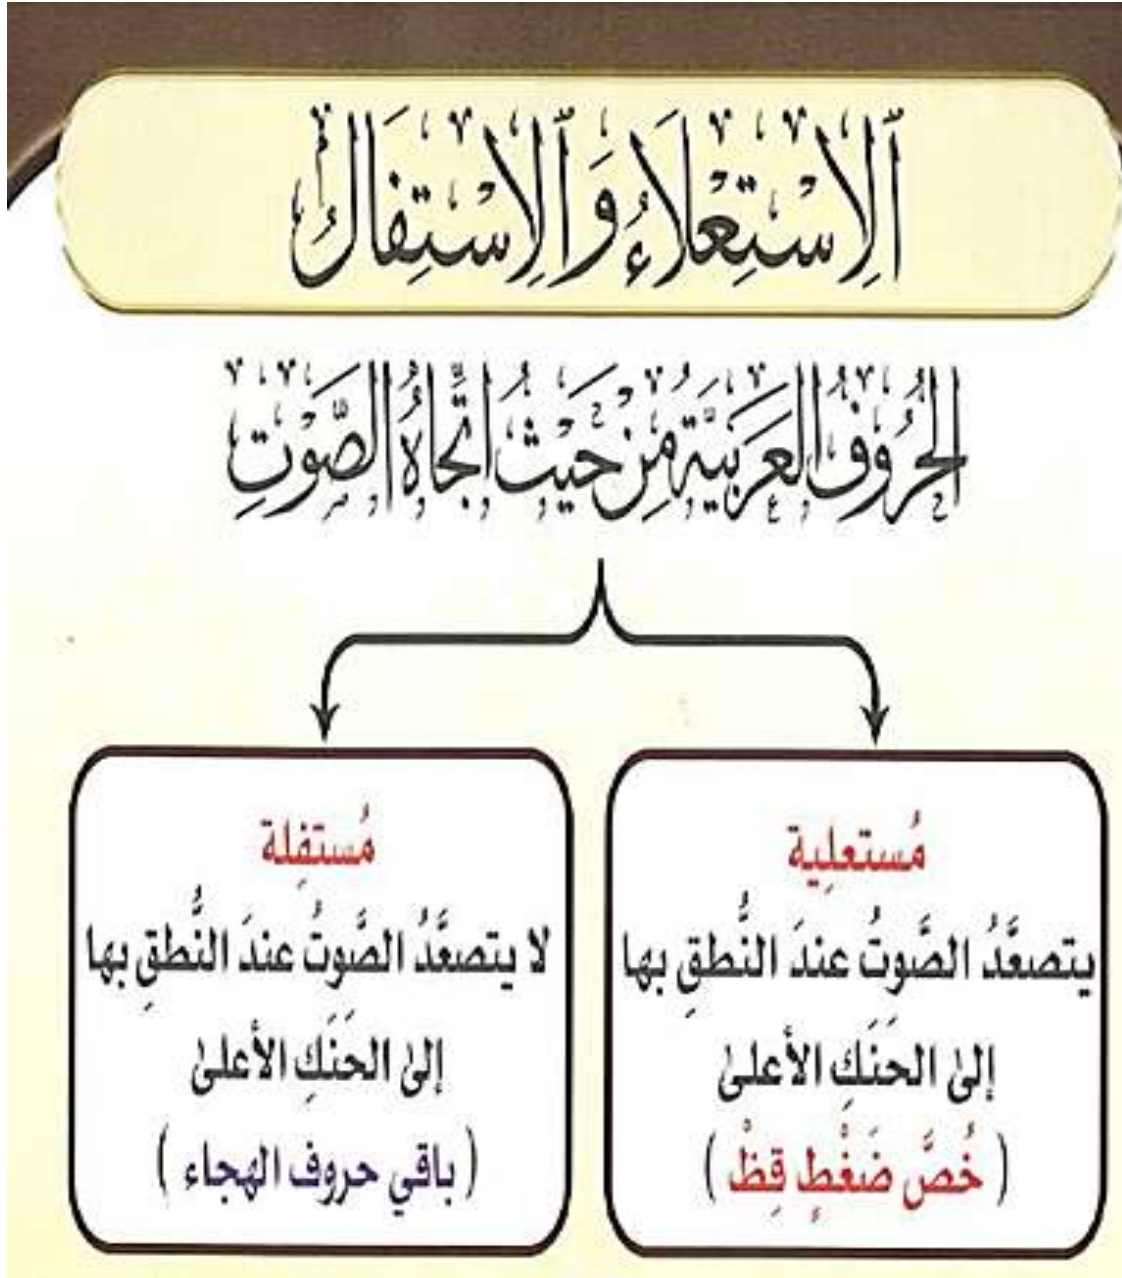 ٱلِاسْتِعْلَاءُ وَٱلِاسْتِفَالُ
الحُرُوفُ العَرَبِيَّةُ مِنْ حَيْثُ اتِّجَاهُ الصَّوْتِ
مُستعلِية
يتصعَّدُ الصَّوتُ عندَ النُّطقِ بها
إلىٰ الحَنَكِ الأعلىٰ
( خُصَّ ضَغْطٍ قِظْ )
مُستفِلة
لا يتصعَّدُ الصَّوتُ عندَ النُّطقِ بها
إلىٰ الحَنَكِ الأعلىٰ
( باقي حروف الهجاء )